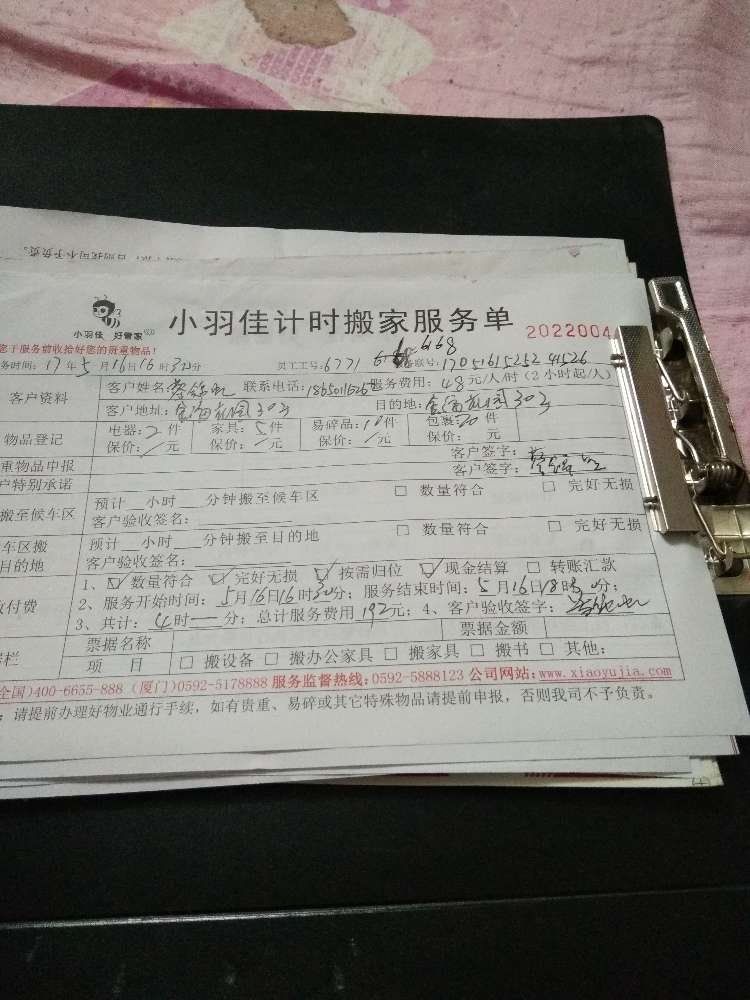 否则我司不予负责。
小羽佳 好管家
小羽佳计时搬家服务单 2022004
您于服务前收拾好您的贵重物品!
务时间: 17年5月16日16时30分 员工工号: 6771 6168 联号: 17051615252 41526
客户资料 客户姓名: 联系电话: 服务费用: 48元/人/时(2小时起/人)
客户地址: 金海花园30号 目的地: 金海花园30号
物品登记 电器: 2件 家具: 5件 易碎品: 10件 包裹: 20件
保价: /元 保价: /元 保价: /元 保价: 元
重物品申报 客户签字:
户特别承诺 客户签字:
搬至候车区 预计 小时 分钟搬至候车区 □ 数量符合 □ 完好无损
客户验收签名:
车区搬目的地 预计 小时 分钟搬至目的地 □ 数量符合 □ 完好无损
客户验收签名:
收付费 1、☑ 数量符合 ☑ 完好无损 ☑ 按需归位 ☑ 现金结算 □ 转账汇款
2、服务开始时间: 5月16日16时30分; 服务结束时间: 5月16日18时30分;
3、共计: 4时—分; 总计服务费用 192元; 4、客户验收签字:
票据名称 票据金额
栏 项 目 □ 搬设备 □ 搬办公家具 □ 搬家具 □ 搬书 □ 其他:
全国)400-6655-888 (厦门)0592-5178888 服务监督热线:0592-5888123 公司网站:www.xiaoyujia.com
: 请提前办理好物业通行手续,如有贵重、易碎或其它特殊物品请提前申报,否则我司不予负责。